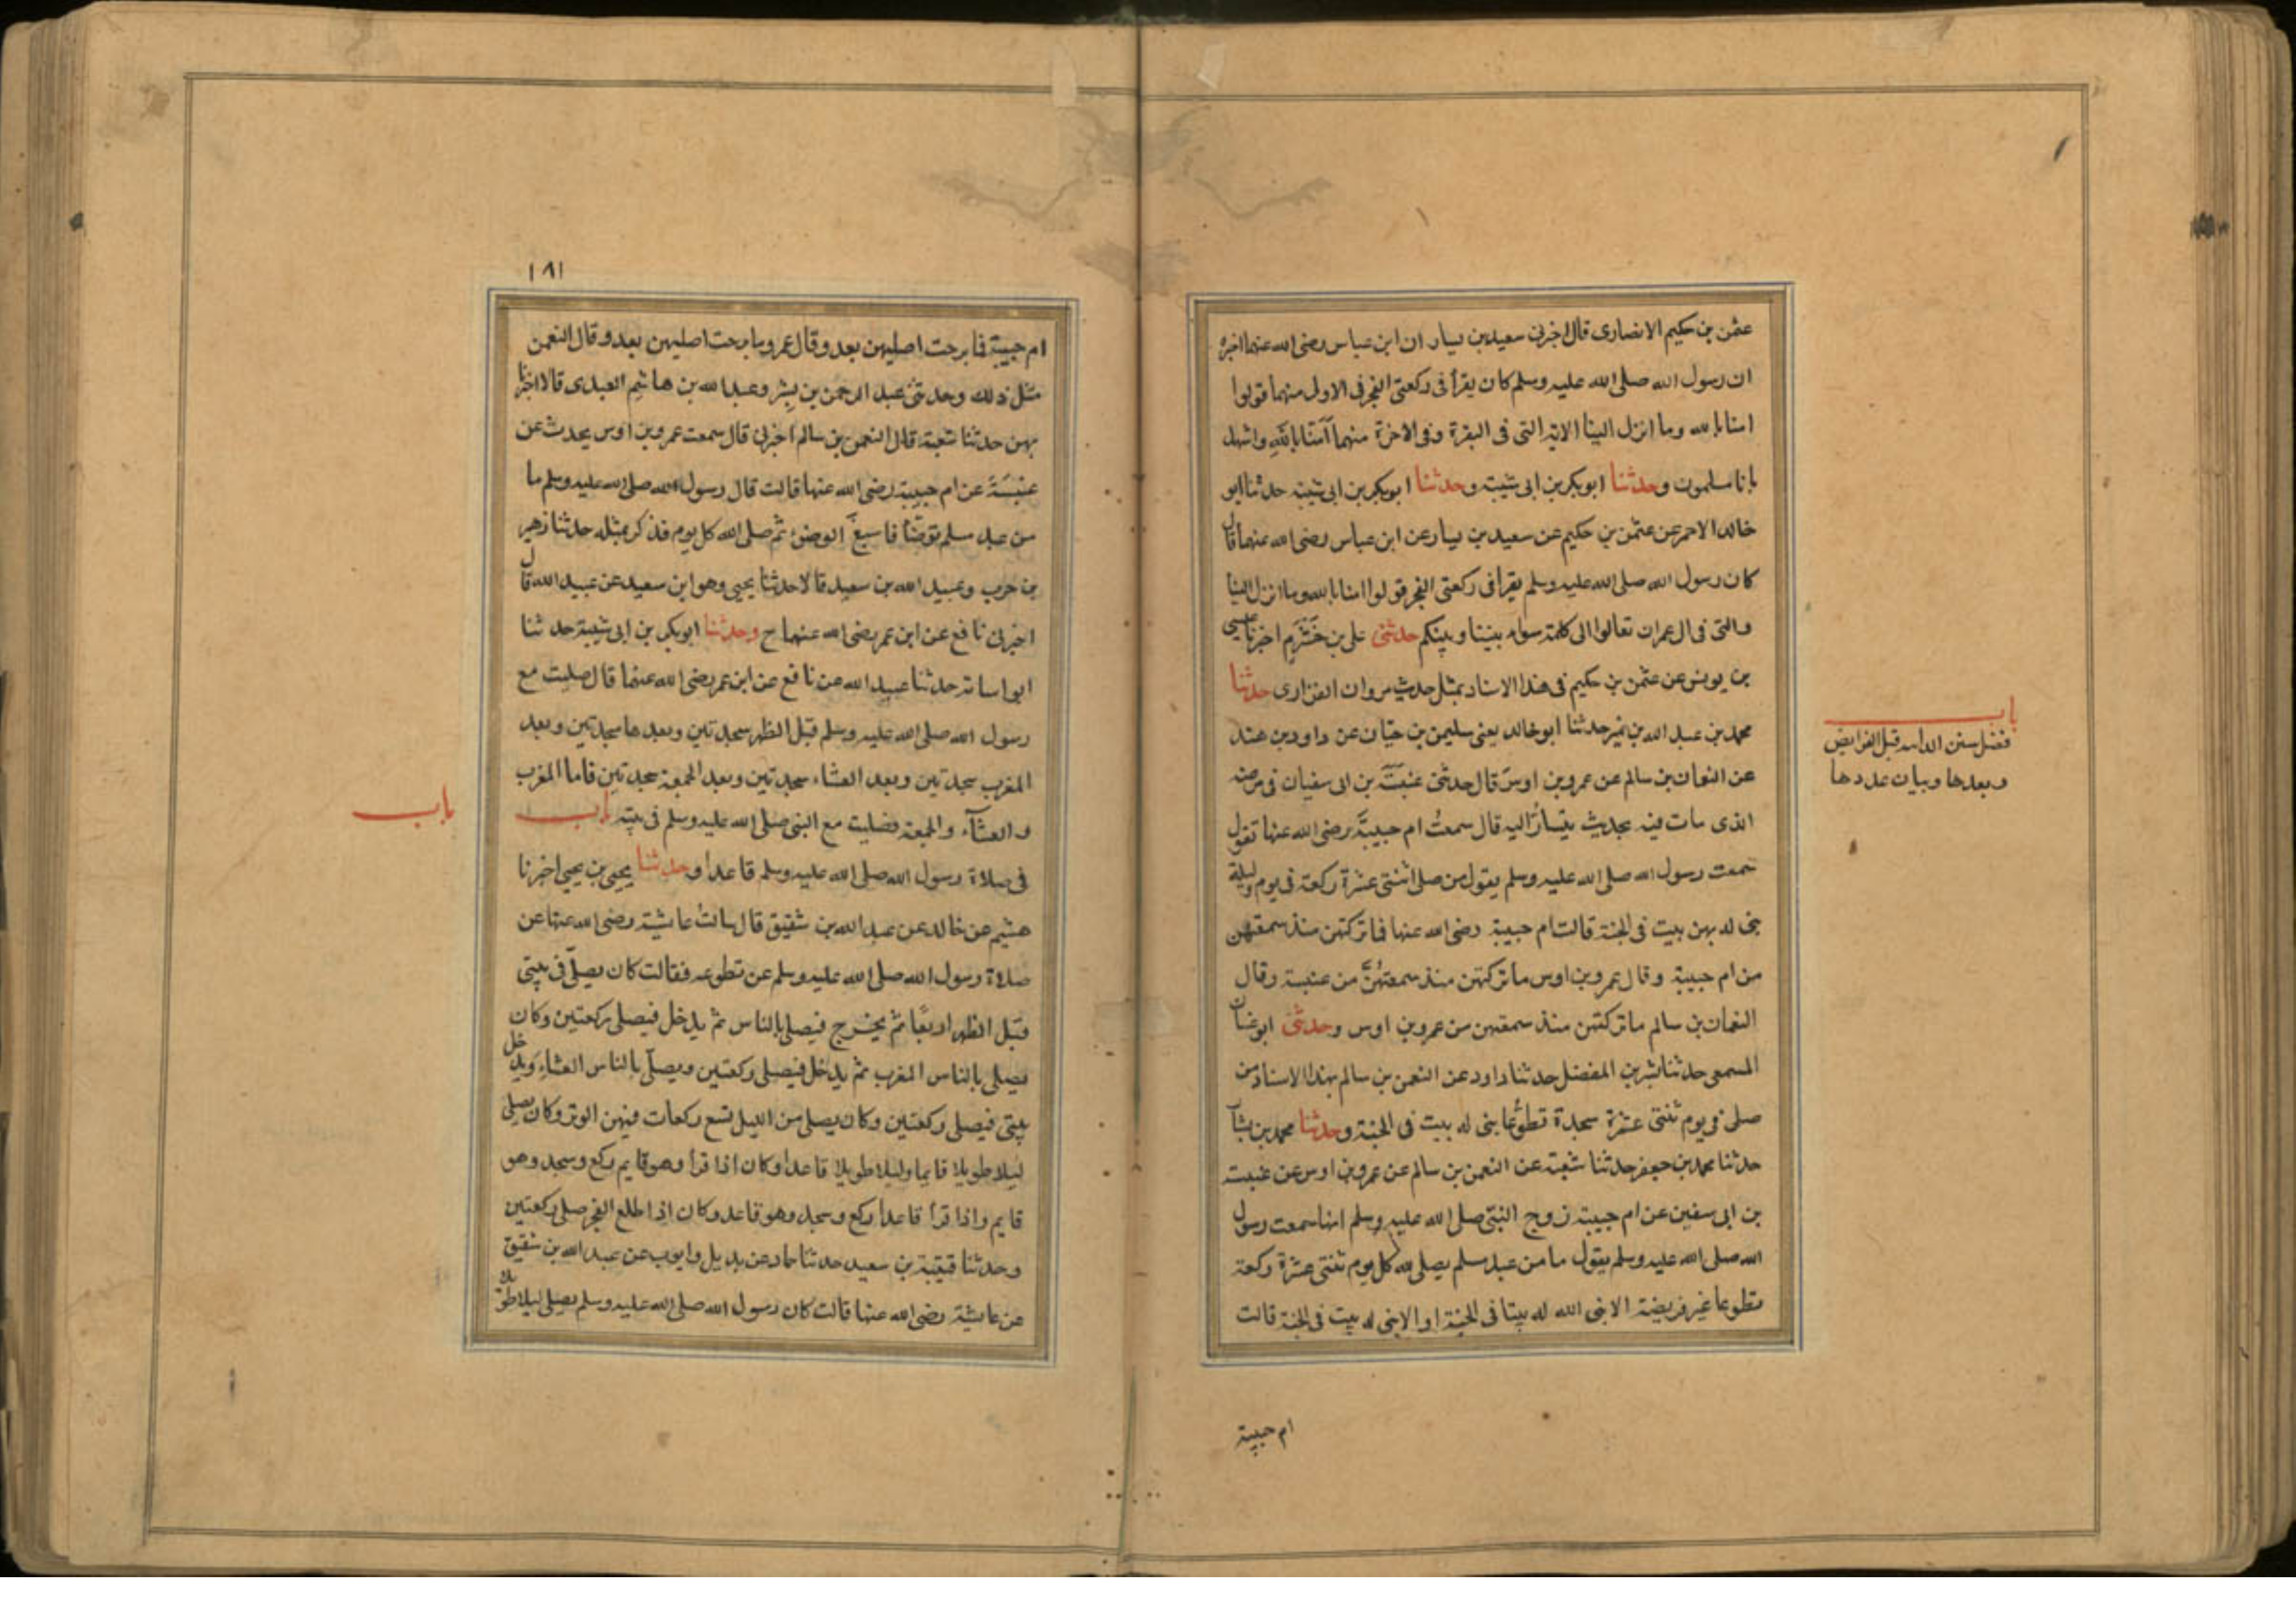 عثمن بن حكيم الانصارى قال اخبرنى سعيد بن يسار ان ابن عباس رضى الله عنهما اخبره
ان رسول الله صلى الله عليه وسلم كان يقرأ فى ركعتى الفجر فى الاول منهما قولوا
امنا بالله وما انزل الينا الاية التى فى البقرة وفى الاخرة منهما آمنا بالله واشهد
بانا مسلمون وحدثنا ابو بكر بن ابى شيبة وحدثنا ابو بكر بن ابى شيبة حدثنا ابو
خالد الاحمر عن عثمن بن حكيم عن سعيد بن يسار عن ابن عباس رضى الله عنهما قال
كان رسول الله صلى الله عليه وسلم يقرا فى ركعتى الفجر قولوا امنا بالله وما انزل الينا
والتى فى ال عمران تعالوا الى كلمة سواء بيننا وبينكم حدثنى على بن خَشْرَمٍ اخبرنا عيسى
بن يونس عن عثمن بن حكيم فى هذا الاسناد بمثل حديث مروان الفزارى حدثنا
باب
فضل سنن الراتبه قبل الفرايض
وبعدها وبيان عددها
محمد بن عبد الله بن نمير حدثنا ابو خالد يعنى سليمن بن حيّان عن داود بن هند
عن النعمان بن سالم عن عمرو بن اوس قال حدثنى عنبسَة بن ابى سفيان فى مرضه
الذى مات فيه بحديث يتسارُّ اليه قال سمعتُ ام حبيبَة رضى الله عنها تقول
سمعت رسول الله صلى الله عليه وسلم يقول من صلى اثنتى عشرة ركعة فى يوم وليلة
بنى له بهن بيت فى الجنة قالت ام حبيبة رضى الله عنها فما تركتهن منذ سمعتهن
من ام حبيبة وقال عمرو بن اوس ما تركتهن منذ سمعتهُنَّ من عنبسة وقال
النعمان بن سالم ما تركتهن منذ سمعتهن من عمرو بن اوس وحدثنى ابو غسان
المسمعى حدثنا بشر بن المفضل حدثنا داود عن النعمن بن سالم بهذا الاسناد من
صلى فى يوم ثنتى عشرة سجدة تطوُّعا بنى له بيت فى الجنة وحدثنا محمد بن بشار
حدثنا محمد بن جعفر حدثنا شعبة عن النعمن بن سالم عن عمرو بن اوس عن عنبسة
بن ابى سفين عن ام حبيبة زوج النبىّ صلى الله عليه وسلم انها سمعت رسول
الله صلى الله عليه وسلم يقول ما من عبد مسلم يصلى لله كل يوم ثنتى عشرة ركعة
تطوعا غير فريضة الا بنى الله له بيتا فى الجنة او الا بنى له بيت فى الجنة قالت
ام حبيبة
١٨١
ام حبيبة فما برحت اصليهن بعد وقال عمرو ما برحت اصليهن بعد وقال النعمن
مثل ذلك وحدثنى عبد الرحمن بن بِشْر وعبد الله بن هاشم العبدى قالا اخبرنا
بهز حدثنا شعبة قال النعمن بن سالم اخبرنى قال سمعت عمرو بن اوس يحدث عن
عنبسَة عن ام حبيبة رضى الله عنها قالت قال رسول الله صلى الله عليه وسلم ما
من عبد مسلم توضّأ فاسبغَ الوضوء ثم صلى الله كل يوم فذكر بمثله حدثنا زهير
بن حرب وعبيد الله بن سعيد قالا حدثنا يحيى وهو ابن سعيد عن عبيد الله قال
اخبرنى نافع عن ابن عمر رضى الله عنهما ح وحدثنا ابو بكر بن ابى شيبة حدثنا
ابو اسامة حدثنا عبيد الله عن نافع عن ابن عمر رضى الله عنهما قال صليت مع
رسول الله صلى الله عليه وسلم قبل الظهر سجدتين وبعدها سجدتين وبعد
المغرب سجدتين وبعد العشاء سجدتين وبعد الجمعة سجدتين فاما المغرب
والعشآء والجمعة فصليت مع النبى صلى الله عليه وسلم فى بيته باب
باب
فى صلاة رسول الله صلى الله عليه وسلم قاعدا وحدثنا يحيى بن يحيى اخبرنا
هشيم عن خالد عن عبد الله بن شقيق قال سالتُ عايشة رضى الله عنها عن
صلاة رسول الله صلى الله عليه وسلم عن تطوعه فقالت كان يصلّى فى بيتى
قبل الظهر اربعًا ثم يخرج فيصلى بالناس ثم يدخل فيصلى ركعتين وكان
يصلى بالناس المغرب ثم يدخل فيصلى ركعتين ويصلّى بالناس العشاء ويدخل
بيتى فيصلى ركعتين وكان يصلى من الليل تسع ركعات فيهن الوتر وكان يصلى
ليلا طويلا قايما وليلا طويلا قاعدا وكان اذا قرأ وهو قايم ركع وسجد وهو
قايم واذا قرأ قاعدا ركع وسجد وهو قاعد وكان اذا طلع الفجر صلى ركعتين
وحدثنا قتيبة بن سعيد حدثنا حماد عن بديل وايوب عن عبد الله بن شقيق
عن عايشة رضى الله عنها قالت كان رسول الله صلى الله عليه وسلم يصلى ليلا طويلا